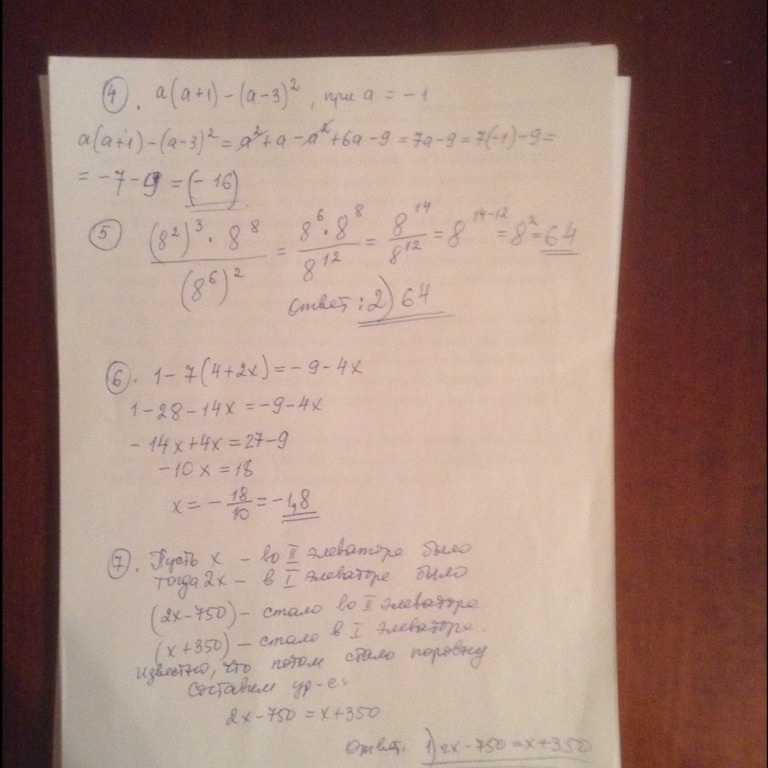 4. a(a+1)-(a-3)², при a = -1
a(a+1)-(a-3)² = a²+a-a²+6a-9 = 7a-9 = 7(-1)-9 =
= -7-9 = (-16)
5 (8²)³·8⁸ / (8⁶)² = 8⁶·8⁸ / 8¹² = 8¹⁴ / 8¹² = 8¹⁴⁻¹² = 8² = 64
Ответ: 2) 64
6. 1-7(4+2x) = -9-4x
1-28-14x = -9-4x
-14x+4x = 27-9
-10x = 18
x = -18/10 = -1,8
7. Пусть x - во II элеваторе было
тогда 2x - в I элеваторе было
(2x-750) - стало во II элеваторе
(x+350) - стало в I элеваторе.
Известно, что потом стало поровну.
Составим ур-е:
2x-750 = x+350
Ответ. 1) 2x-750 = x+350